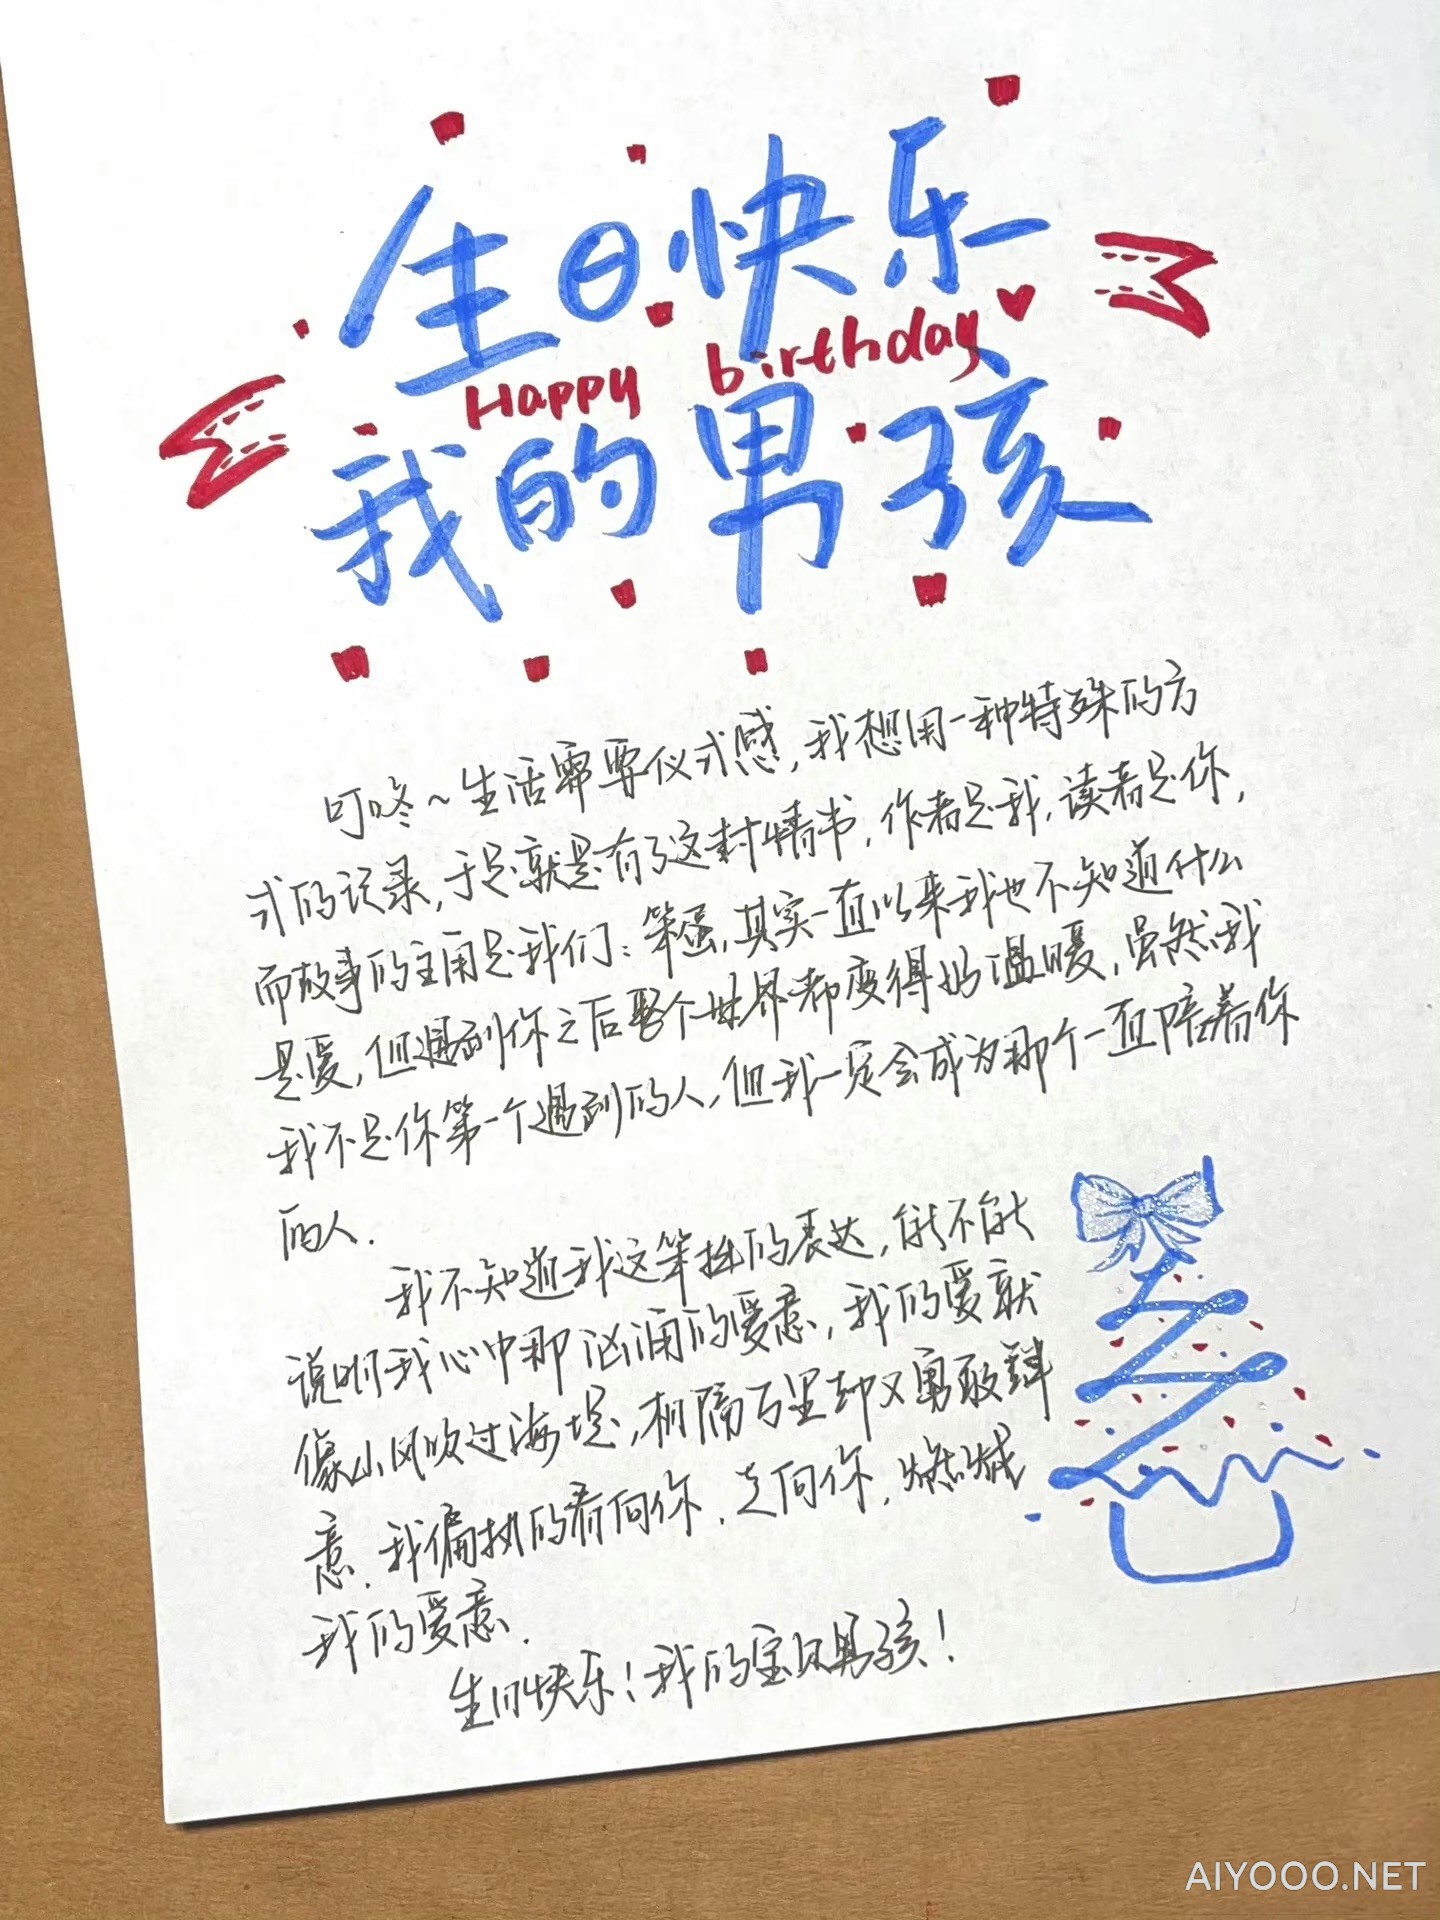 生日快乐
Happy birthday
我的男孩
叮咚~生活需要仪式感,我想用一种特殊的方
式的记录,于是就是有了这封情书,作者是我,读者是你,
而故事的主角是我们:笨蛋,其实一直以来我也不知道什么
是爱,但遇到你之后整个世界都变得好温暖,虽然我
我不是你第一个遇到的人,但我一定会成为那个一直陪着你
的人.
我不知道我这笨拙的表达,能不能
说明我心中那汹涌的爱意,我的爱就
像山风吹过海堤,相隔万里却又勇敢肆
意.我偏执的看向你.走向你,燃烧
我的爱意.
生日快乐!我的宝贝男孩!
AIYOOO.NET